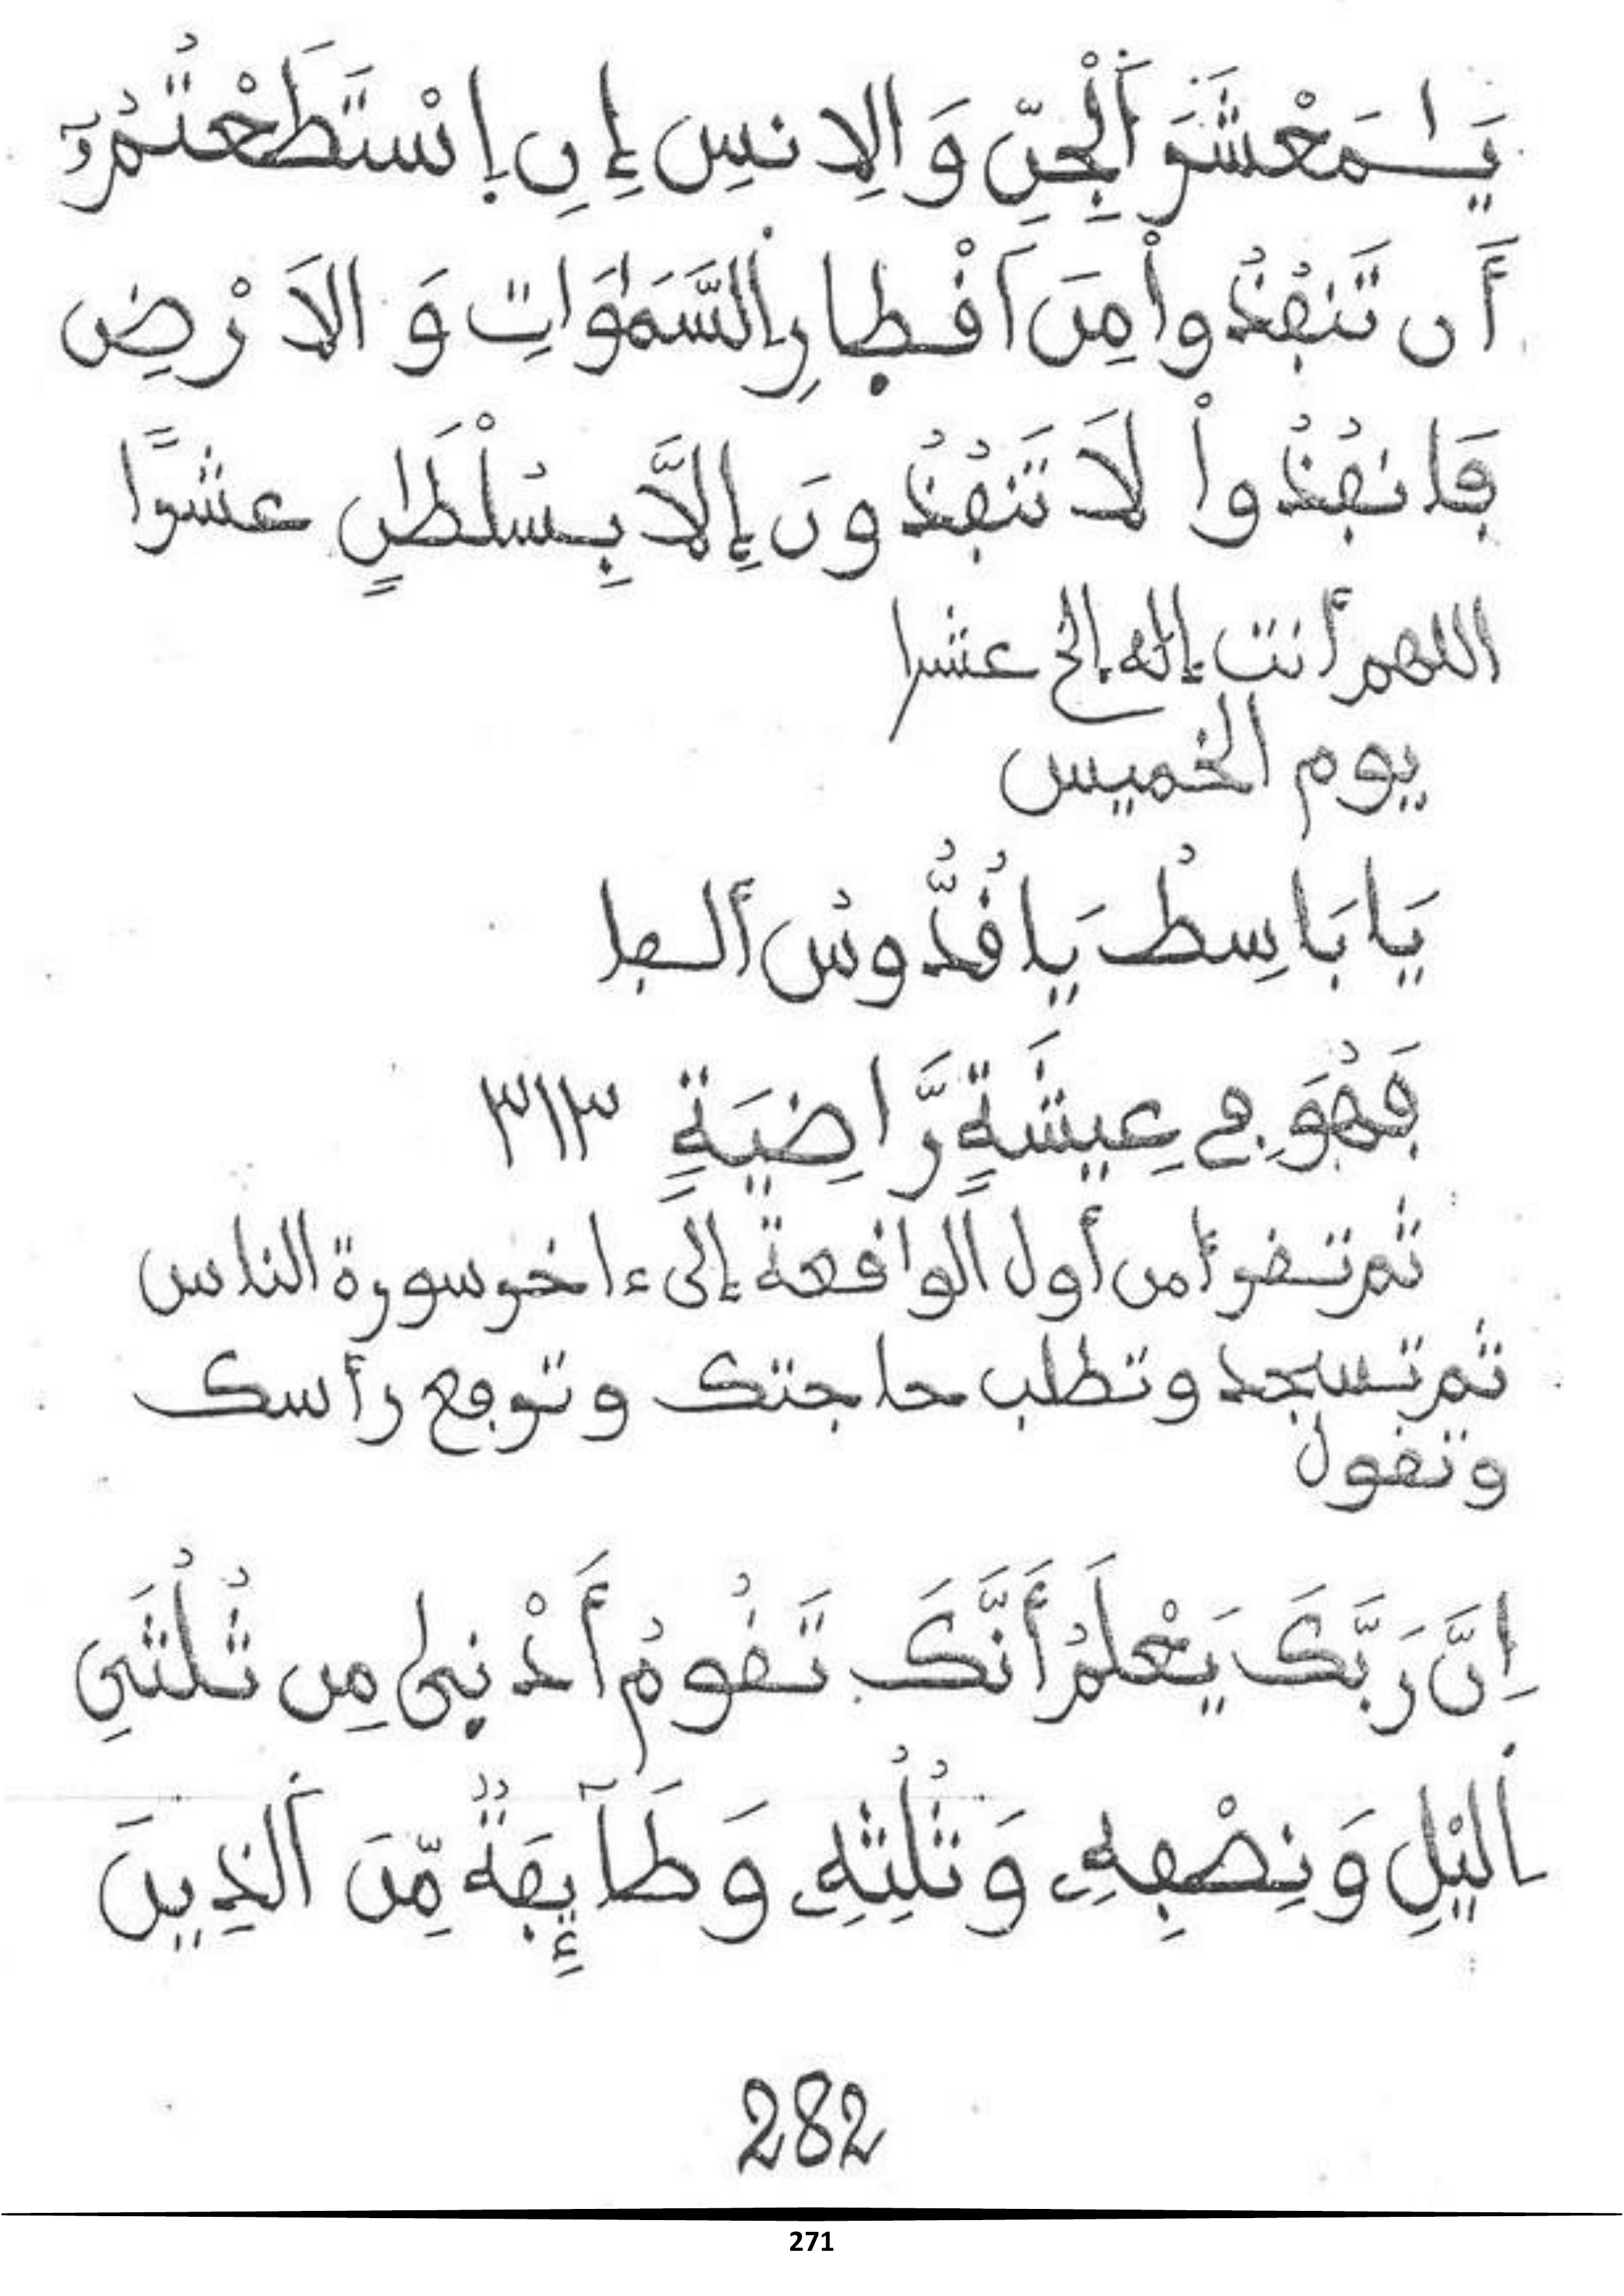 يَٰمَعْشَرَ اَ۬لْجِنِّ وَالِانسِ إِنِ اِ۪سْتَطَعْتُمُۥٓ
أَن تَنفُذُواْ مِنَ اَقْطارِ اِ۬لسَّمَٰوَٰتِ وَالَارْضِ
فَانفُذُواْ لَا تَنفُذُونَ إِلَّا بِسُلْطَٰنٍ عشرًا
اللهم أنت إله إلخ عشرا
يوم الخميس
يَا بَاسِطُ يَا قُدُّوسُ ألفا
فَهُوَ فِے عِيشَةٍ رَّاضِيَةٍ ٣١٣
ثم تقرأ من أول الواقعة إلى ءاخر سورة الناس
ثم تسجد وتطلب حاجتك وترفع رأسك
وتقول
اِنَّ رَبَّكَ يَعْلَمُ أَنَّكَ تَقُومُ أَدْنٜىٰ مِن ثُلُثَيِ
اِ۬ليْلِ وَنِصْفِهِۦ وَثُلُثِهِۦ وَطَآئِفَةٌ مِّنَ اَ۬لذِينَ
282
271